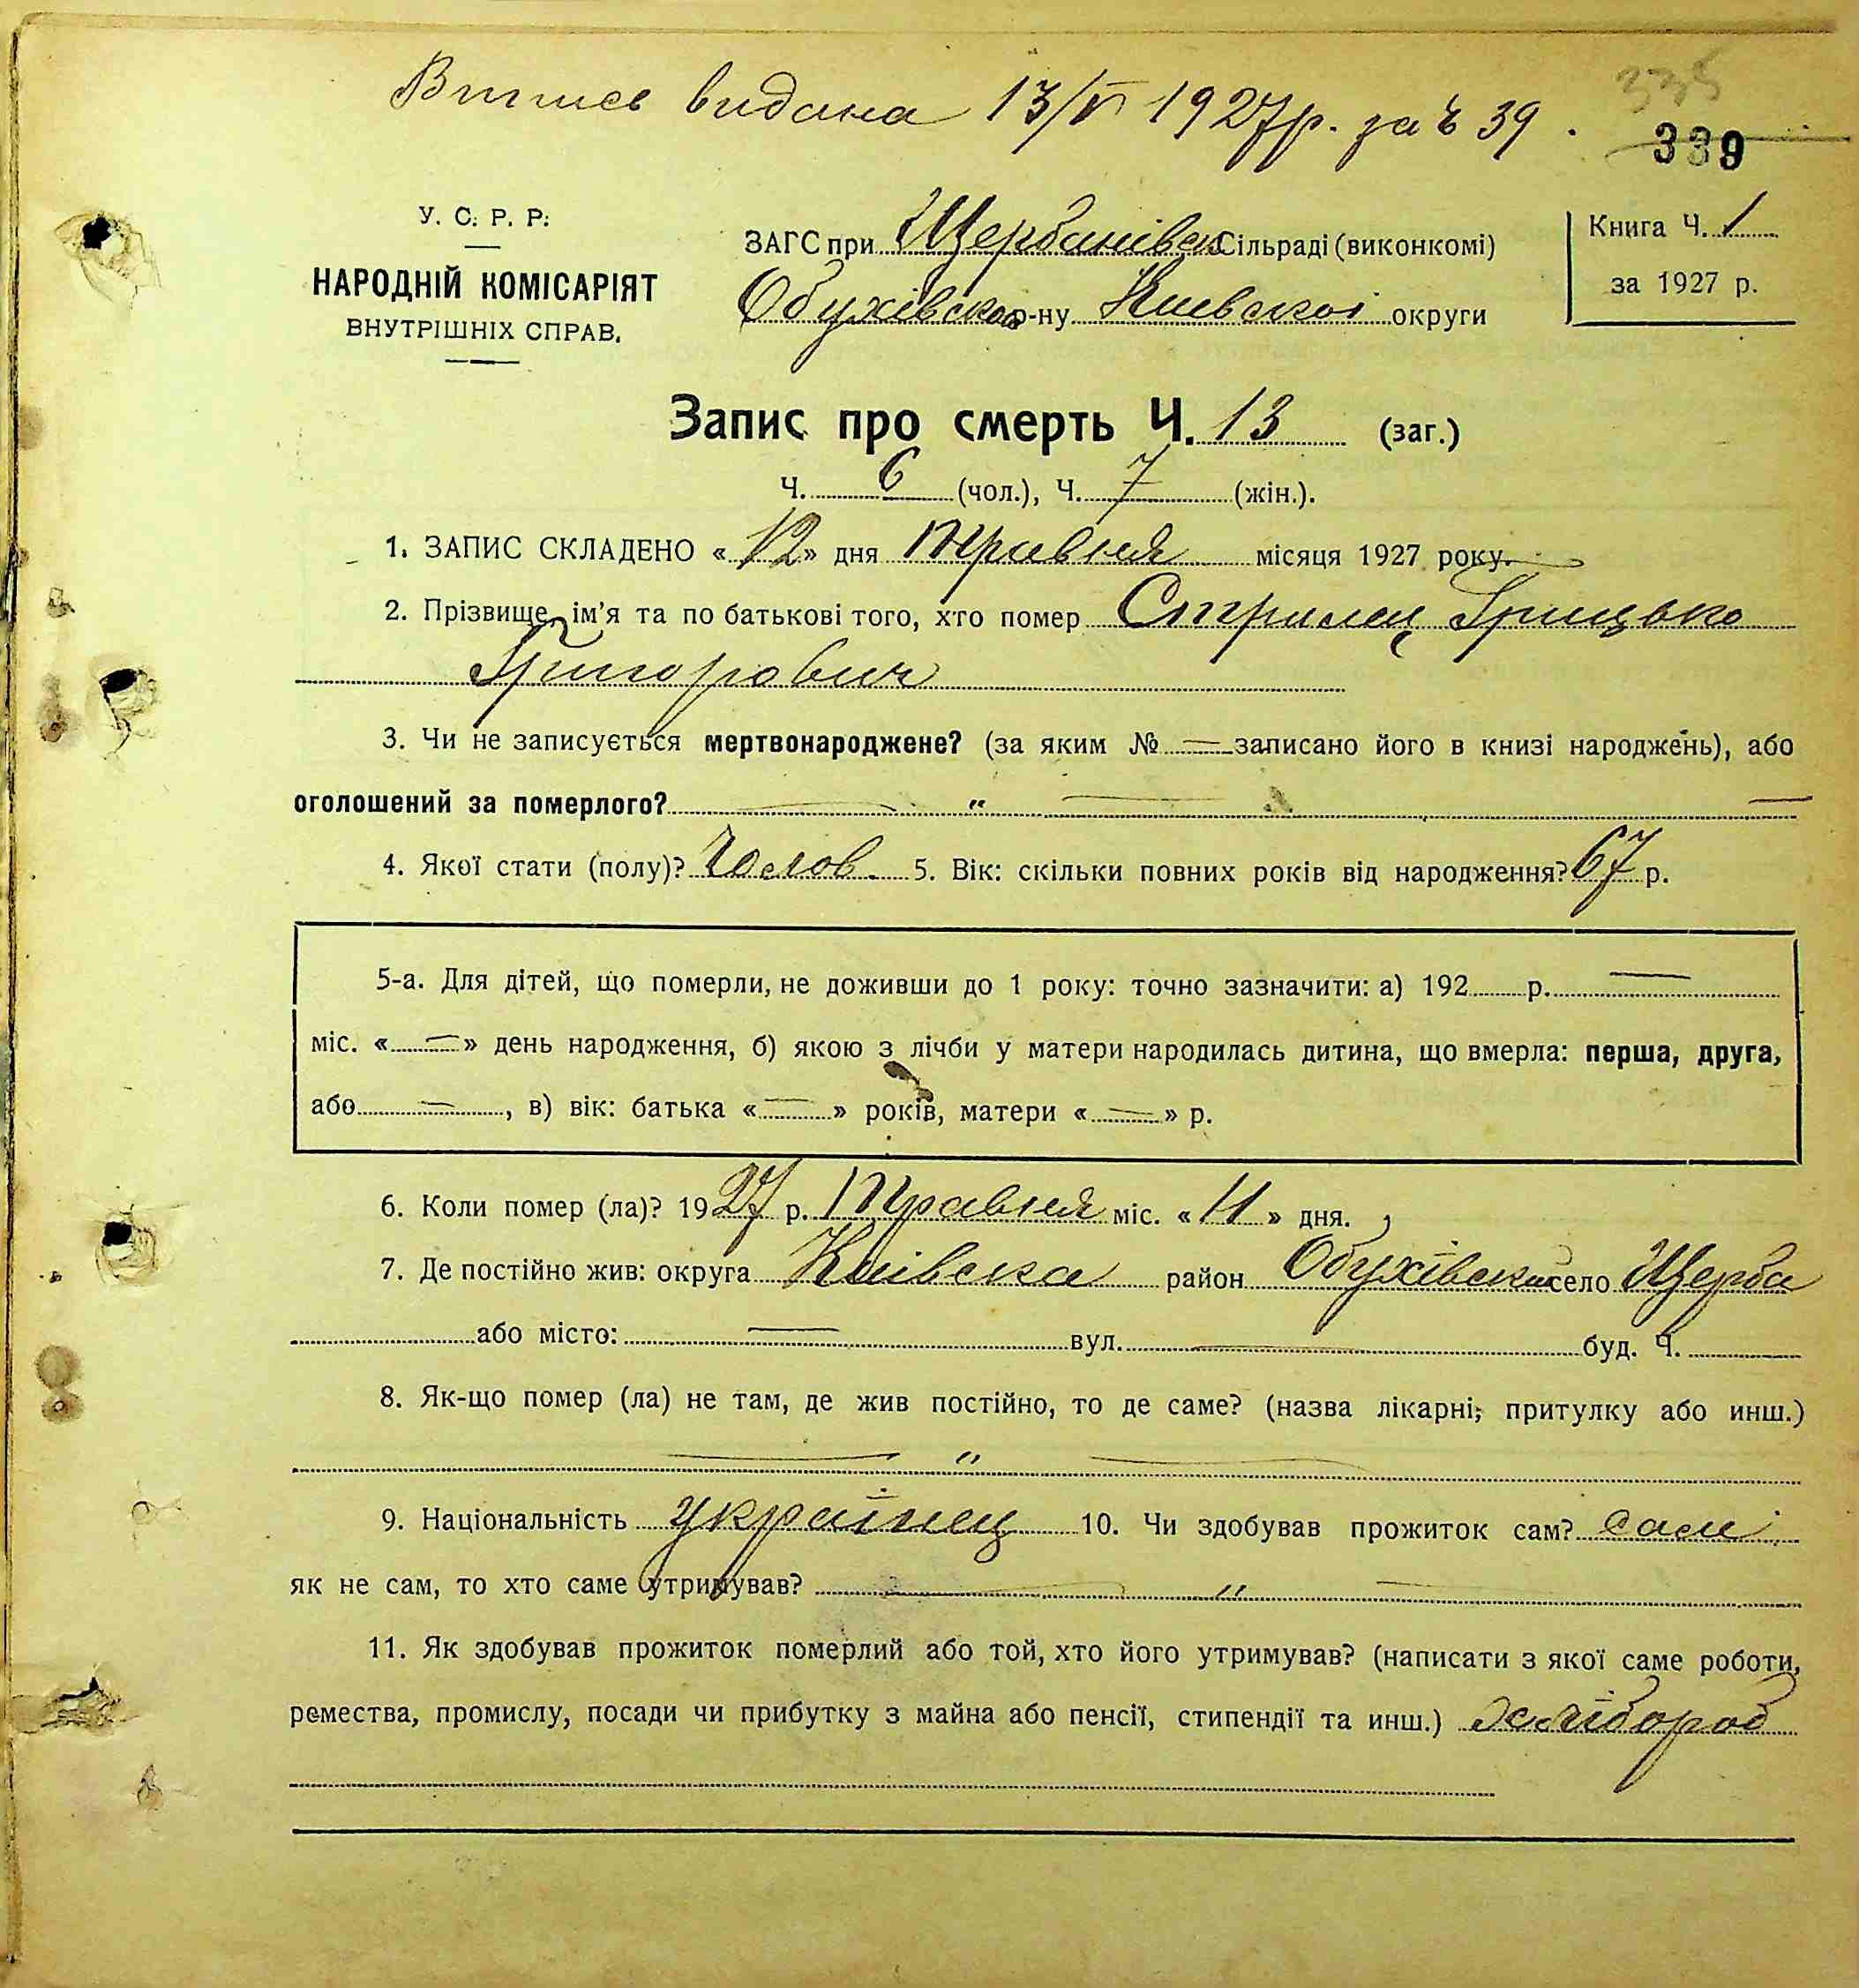 Витись видана 13/VI 1927р. за Ч 39.
335
339
У. С. Р. Р.
НАРОДНІЙ КОМІСАРІЯТ
ВНУТРІШНІХ СПРАВ.
ЗАГС при Щербанівск Сільраді (виконкомі)
Обухівского р-ну Киевскоі округи
Книга Ч. 1
за 1927 р.
Запис про смерть Ч. 13 (заг.)
Ч. 6 (чол.), Ч. 7 (жін.).
1. ЗАПИС СКЛАДЕНО «12» дня Травня місяця 1927 року.
2. Прізвище, ім'я та по батькові того, хто помер Стрилец Грицько
Григорович
3. Чи не записується мертвонароджене? (за яким № — записано його в книзі народжень), або
оголошений за померлого? — " —
4. Якої стати (полу)? Чолов. 5. Вік: скільки повних років від народження? 67 р.
5-а. Для дітей, що померли, не доживши до 1 року: точно зазначити: а) 192 р. —
міс. «—» день народження, б) якою з лічби у матери народилась дитина, що вмерла: перша, друга,
або —, в) вік: батька «—» років, матери «—» р.
6. Коли помер (ла)? 1927 р. Травня міс. «11» дня.
7. Де постійно жив: округа Київска район Обухівски село Щерба
або місто: — вул. — буд. Ч.
8. Як-що помер (ла) не там, де жив постійно, то де саме? (назва лікарні, притулку або инш.)
— " —
9. Національність українец 10. Чи здобував прожиток сам? сам
як не сам, то хто саме утримував? — " —
11. Як здобував прожиток померлий або той, хто його утримував? (написати з якої саме роботи,
ремества, промислу, посади чи прибутку з майна або пенсії, стипендії та инш.) хлібороб